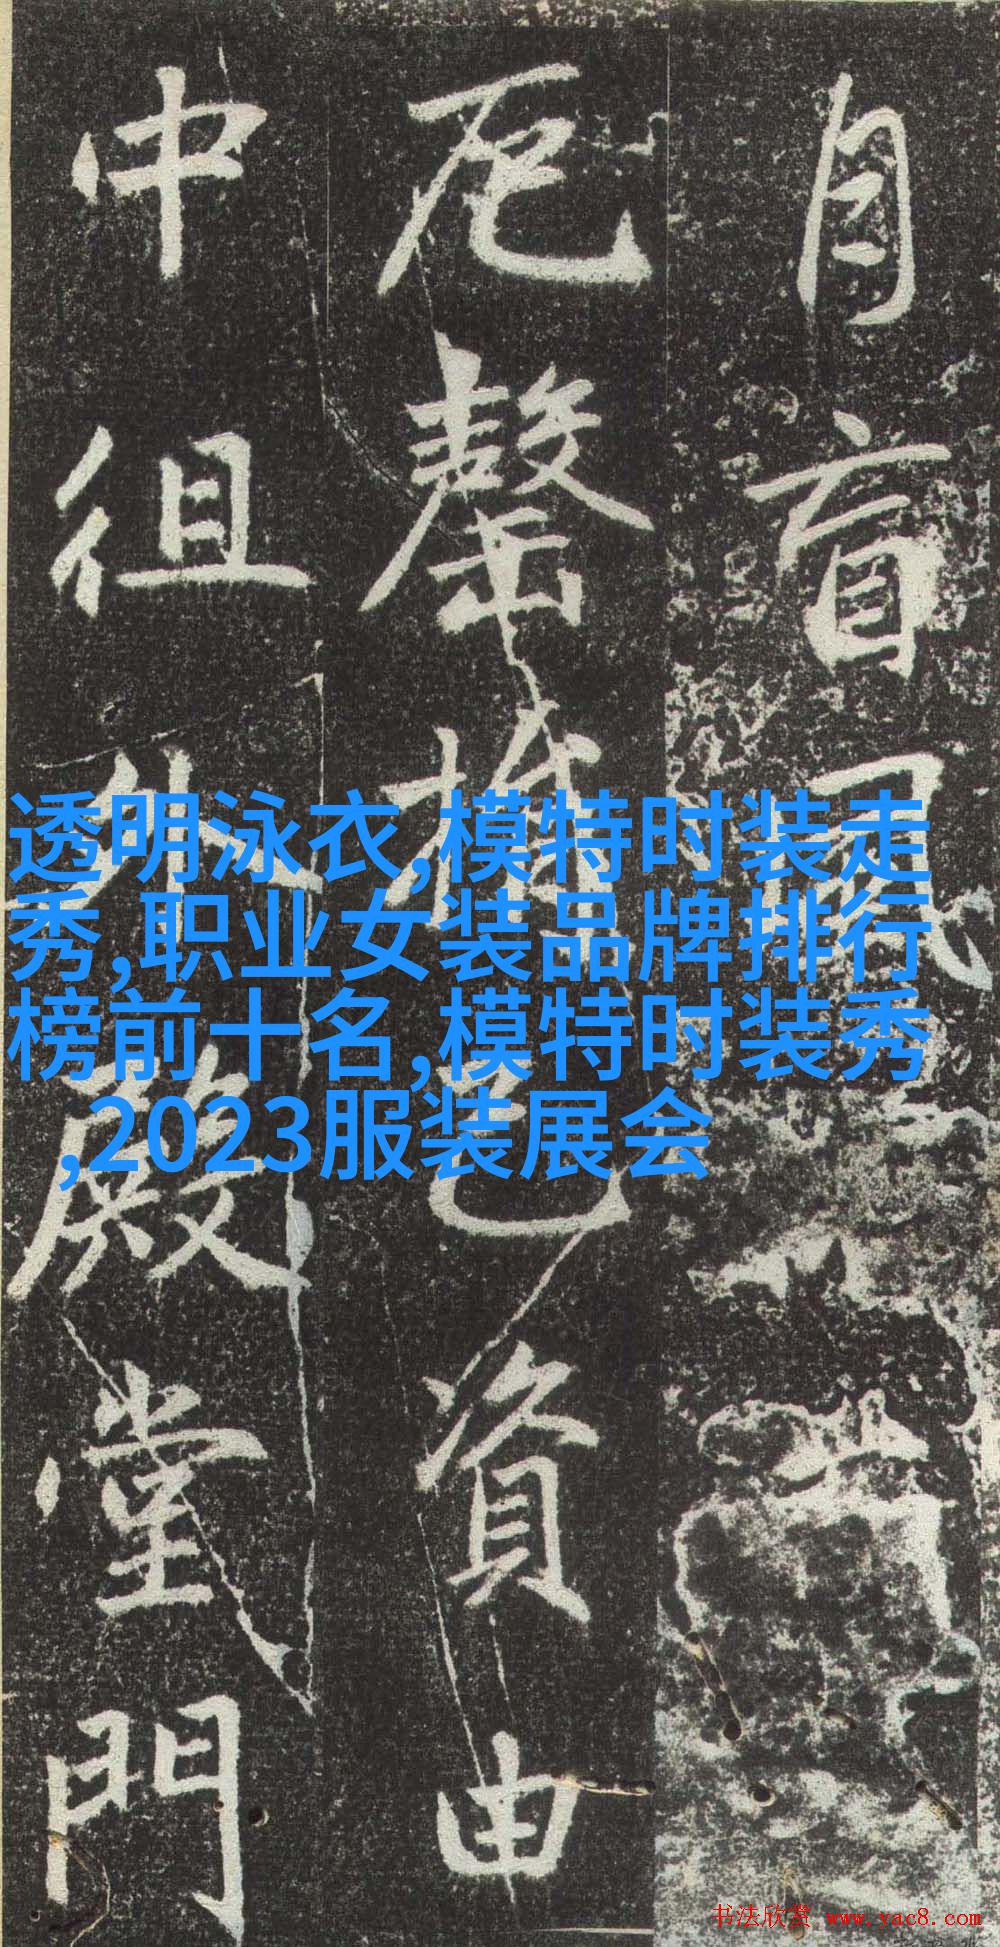 自盲風
卮罄摧已資由
中徂外殿堂門
透明泳衣,模特时装走
秀,职业女装品牌排行
榜前十名,模特时装秀
,2023服装展会
书法欣赏 www.yac8.com